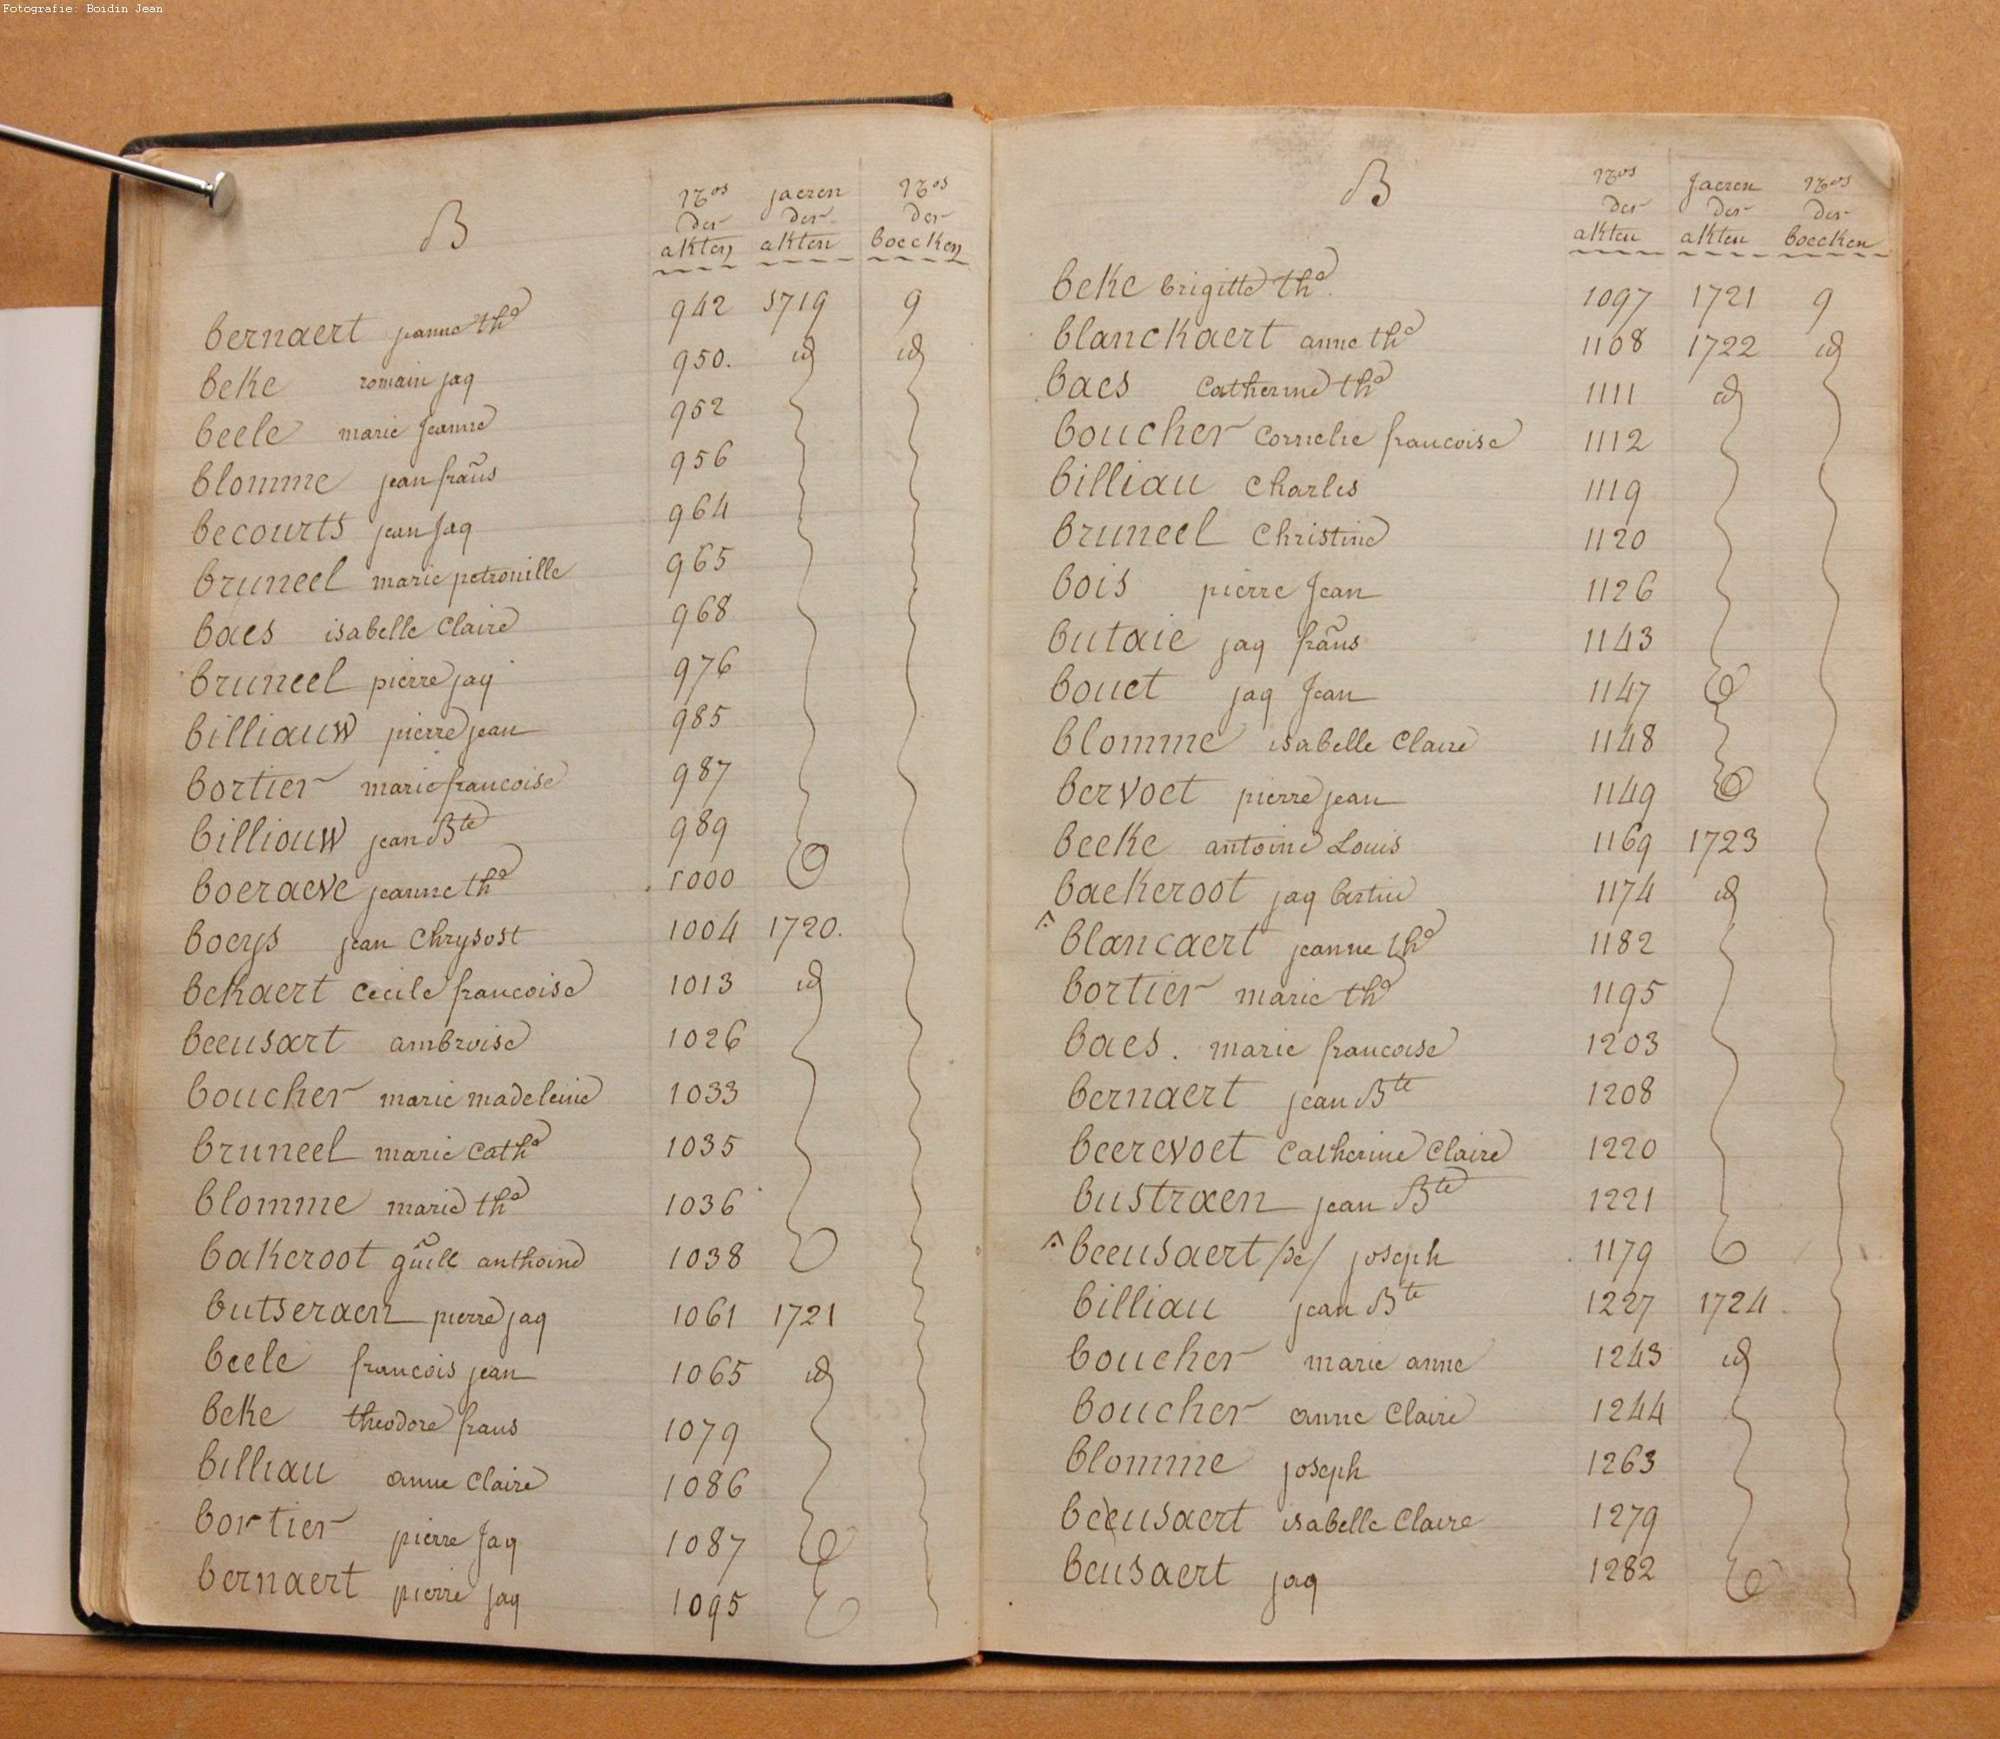 Fotografie: Boidin Jean
B
Nos der akten
jaeren der akten
Nos der boecken
bernaert jeanne tha 942 1719 9
beke romain jaq 950. id id
beele marie jeanne 952
blomme jean frans 956
becourts jean jaq 964
bruneel marie petronille 965
baes isabelle Claire 968
bruneel pierre jaq 976
billiauw pierre jean 985
bortier marie francoise 987
billiouw jean Bte 989
boeraeve jeanne tha 1000
boeys jean Chrysost 1004 1720.
bekaert Cecile francoise 1013 id
beeusart ambroise 1026
boucher marie madeleine 1033
bruneel marie catha 1035
blomme marie tha 1036
bakeroot guill anthoine 1038
butseraen pierre jaq 1061 1721
beele francois jean 1065 id
beke theodore frans 1079
billiau anne Claire 1086
bortier pierre Jaq 1087
bernaert pierre jaq 1095
B
Nos der akten
Jaeren der akten
Nos der boecken
beke brigitte tha. 1097 1721 9
blanckaert anne tha 1108 1722 id
baes Catherine tha 1111 id
boucher Cornelie francoise 1112
billiau Charles 1119
bruneel Christine 1120
bois pierre Jean 1126
butaie jaq frans 1143
bouet jaq Jean 1147
blomme isabelle Claire 1148
bervoet pierre jean 1149
beeke antoine Louis 1169 1723
baekeroot jaq 1174 id
blancaert jeanne tha 1182
bortier marie tha 1195
baes. marie francoise 1203
bernaert jean Bte 1208
beerevoet Catherine Claire 1220
bustraen jean Bte 1221
beeusaert /de/ joseph 1179
billiau jean Bte 1227 1724.
boucher marie anne 1243 id
boucher anne Claire 1244
blomme joseph 1263
beeusaert isabelle Claire 1279
beusaert jaq 1282